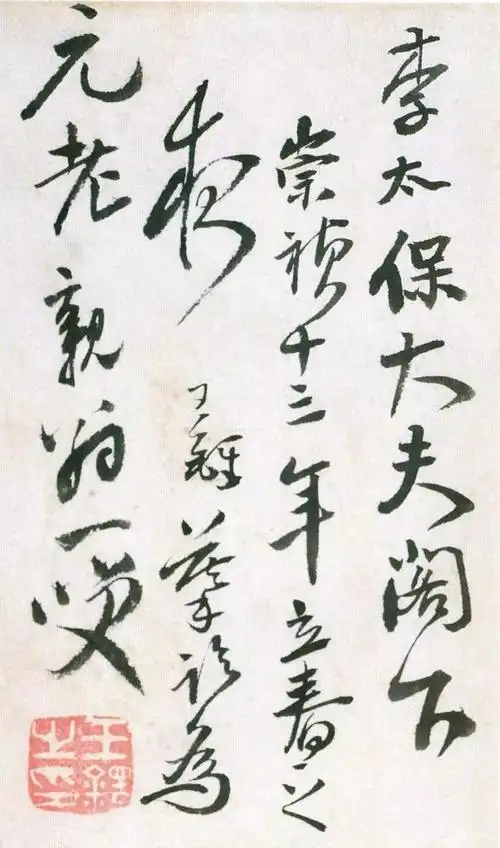 李太保大夫閣下
崇禎十三年立春之
夜王鐸為
元老親翁一笑
王鐸之印